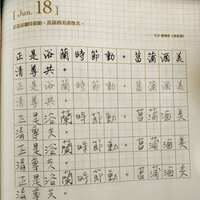 [ Jun. 18 ]
正是浴蘭時節動。菖蒲酒美清尊共。
正是浴蘭時節動。菖蒲酒美
清尊共。
正是浴蘭時節動。菖蒲酒美
清尊共。
正是浴蘭時節動。菖蒲酒美
清尊共。
正是浴蘭時節動。菖蒲酒美
清尊共。